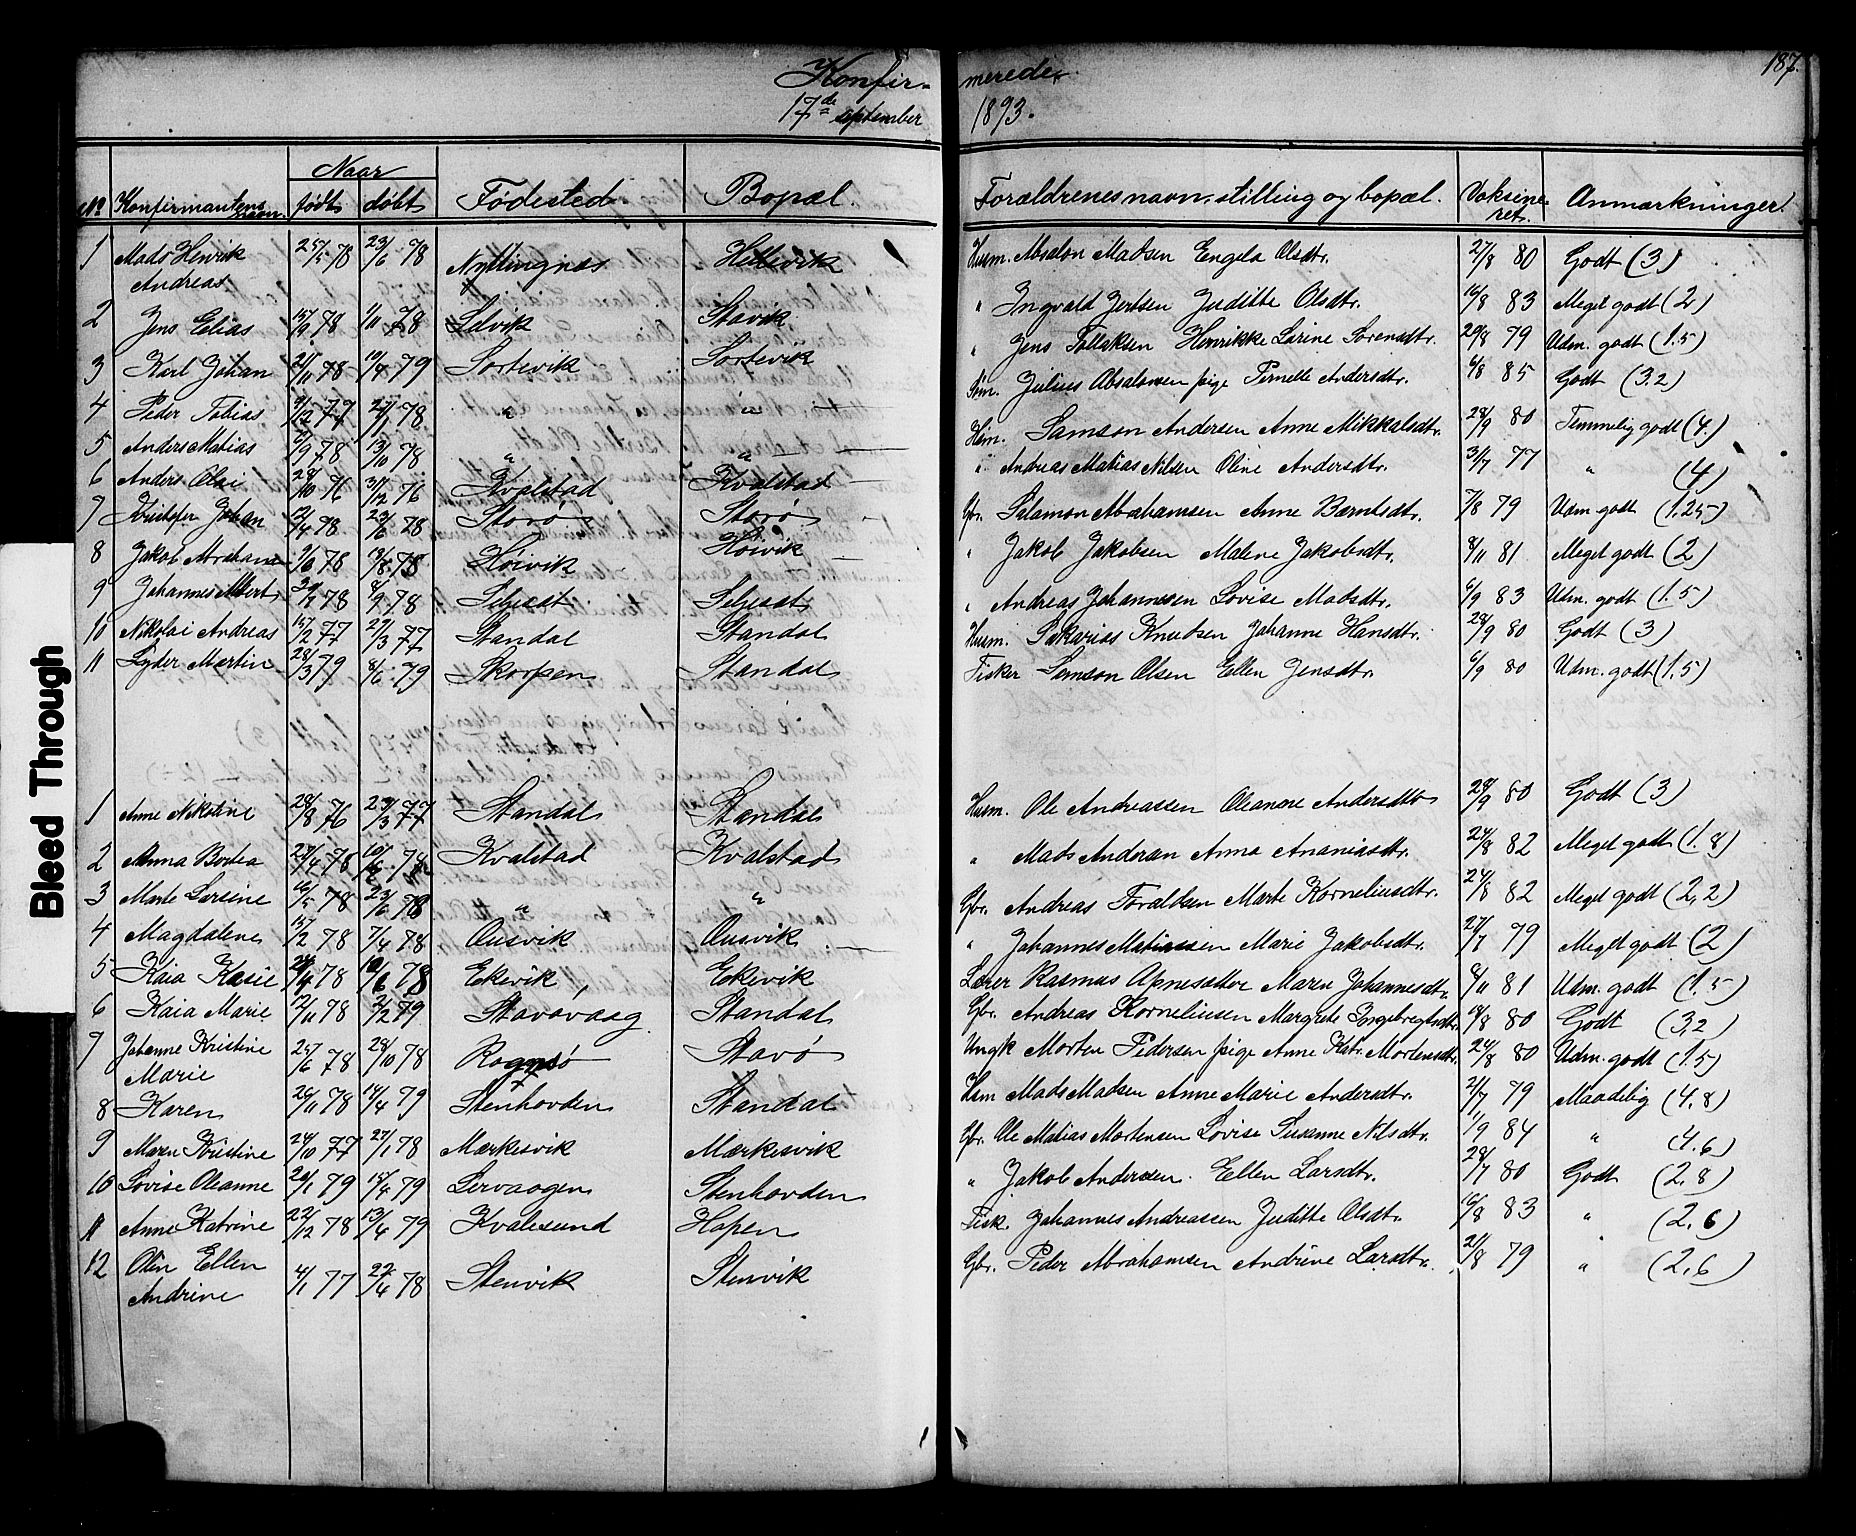 Konfirmerede 187.
17de september 1893.
Naar
No Konfirmantens navn født døbt Fødested Bopæl. Forældrenes navn, stilling og bopæl. Vaksineret. Anmærkninger.
1 Mads Henrik Andreas 25/5 78 23/6 78 Nyttingnæs Hellevik Husm. Absalon Madsen Engela Olsdtr. 27/8 80 Godt (3)
2 Jens Elias 15/9 78 78 Stavik " Ingvald Jertsen Juditte Olsdtr. 16/8 83 Meget godt (2)
3 Karl Johan 21/11 78 10/4 79 Sortevik Sortevik " Jens Tollaksen Henrikke Larine Sørensdtr. 20/8 79 Udm. godt (1.5)
4 Peder Tobias 9/12 77 27/1 78 " " Julius Absalonsen pige Pernelle Andersdtr. 6/8 85 Godt (3.2)
5 Anders Matias 9 78 13/10 78 " " Hsm. Samson Andersen Anne Mikkalsdtr. 28/9 80 Temmelig godt (4.)
6 Anders Olai 28/10 76 31/12 76 Kvalstad Kvalstad " Andreas Matias Nilsen Oline Andersdtr. 3/7 77 " (4)
7 Kristofer Johan 21/4 78 23/6 78 Storø Storø Gbr. Salamon Abrahamsen Anne Berntsdtr. 7/8 79 Udm. godt (1.25)
8 Jakob Abraham 9/6 78 18/8 78 Høivik Høivik " Jakob Jakobsen Malene Jakobsdtr. 8/11 81 Meget godt (2)
9 Johannes Albert 78 8/9 78 Seljesat Seljesat " Andreas Johannesen Lovise Madsdtr. 6/9 83 Udm. godt (1.5)
10 Nikolai Andreas 15/2 77 27/3 77 Standal Standal Husm. Sakarias Knudsen Johanne Hansdtr. 28/9 80 Godt (3)
11 Lyder Martin 28/3 79 8/6 79 Skorpen Standal Fisker Samson Olsen Ellen Jensdtr. 6/9 80 Udm. godt (1.5)
1 Anne Nikoline 28/8 76 23/3 77 Standal Standal Husm. Ole Andreassen Oleanne Andersdtr 28/9 80 Godt (3)
2 Anna Bodea 23/4 78 10/6 78 Kvalstad Kvalstad " Mads Anderan Anna Ananiasdtr. 24/8 82 Meget godt (1.8)
3 Marte Larsine 16/5 78 23/6 78 " " Gbr. Andreas Toraldsen Marte Korneliusdtr. 24/8 82 Meget godt (2,2)
4 Magdalene 15/2 78 7/4 78 Ausvik Ausvik " Johannes Matiassen Marie Jakobsdtr. 27/7 79 Meget godt (2)
5 Kaia Kasie 78 10/6 78 Ekevik Ekevik Lærer Rasmus Apnesæther Maren Johannesdtr. 8/11 81 Udm. godt (1.5)
6 Kaia Marie 12/11 78 2/2 79 Stavøvaag Standal Gbr. Andreas Korneliusen Margrete Ingebregtsdtr. 18/8 80 Godt (3,2)
7 Johanne Kristine Marie 25/6 78 28/10 78 Rognsø Stavø Ungk Morten Pedersen pige Anne Katr. Mortensdtr. 24/8 80 Udm. godt (1.5)
8 Karen 26/11 78 14/4 79 Stenhovden Standal Hsm Mads Madsen Anne Marie Andersdtr. 2/7 79 Maadelig (4,8)
9 Maren Kristine 24/10 77 27/1 78 Markesvik Markesvik Gbr. Ole Matias Mortensen Lovise Susanne Nilsdtr. 1/9 84 " (4.6)
10 Lovise Oleanne 26/1 79 14/4 79 Lervaagen Stenhovden " Jakob Andersen. Ellen Larsdtr. 28/7 80 Godt (2,8)
11 Anne Katrine 22/12 78 13/4 79 Kvalesund Hopen Fisk. Johannes Andreassen Juditte Olsdtr. 16/8 83 " (2,6)
12 Olin Ellen Andrine 4/1 77 22/4 78 Stenvik Stenvik Gbr. Peder Abrahamsen Andrine Larsdtr. 21/8 79 " (2,6)
Bleed Through